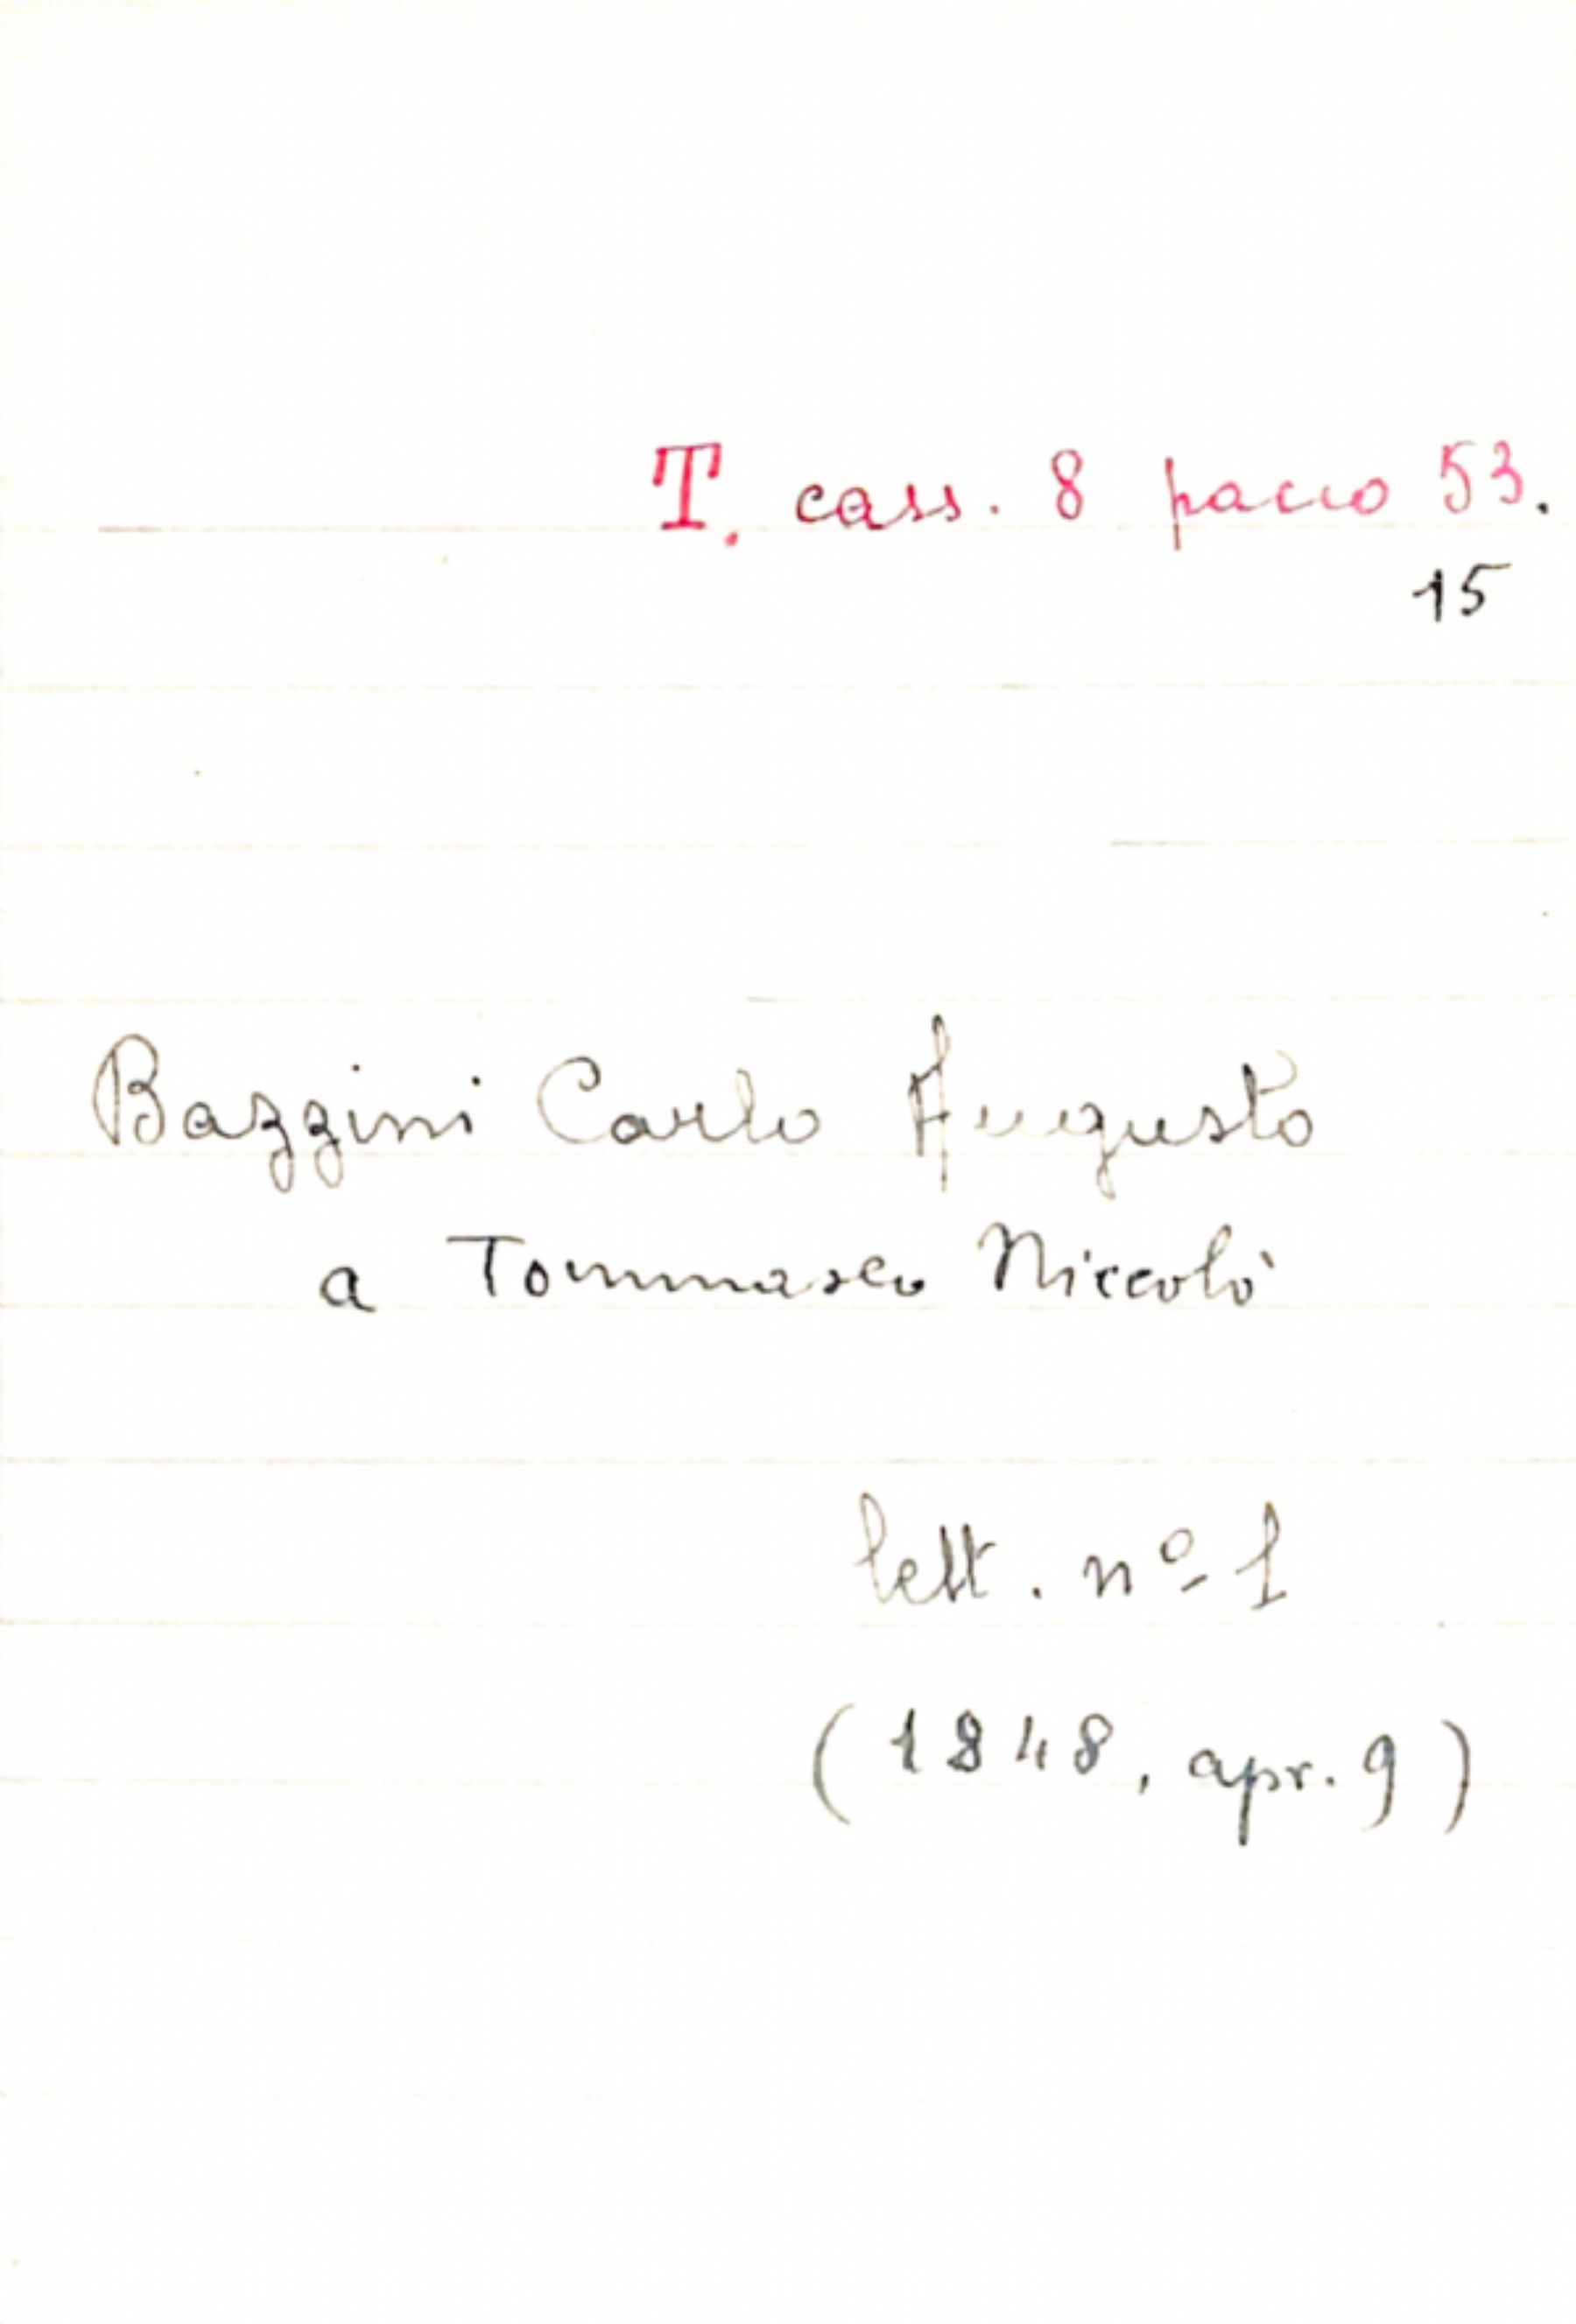 T. cass. 8 pacco 53.
15
Bazzini Carlo Augusto
a Tommaseo Niccolò
lett. nº 1
(1848, apr. 9)